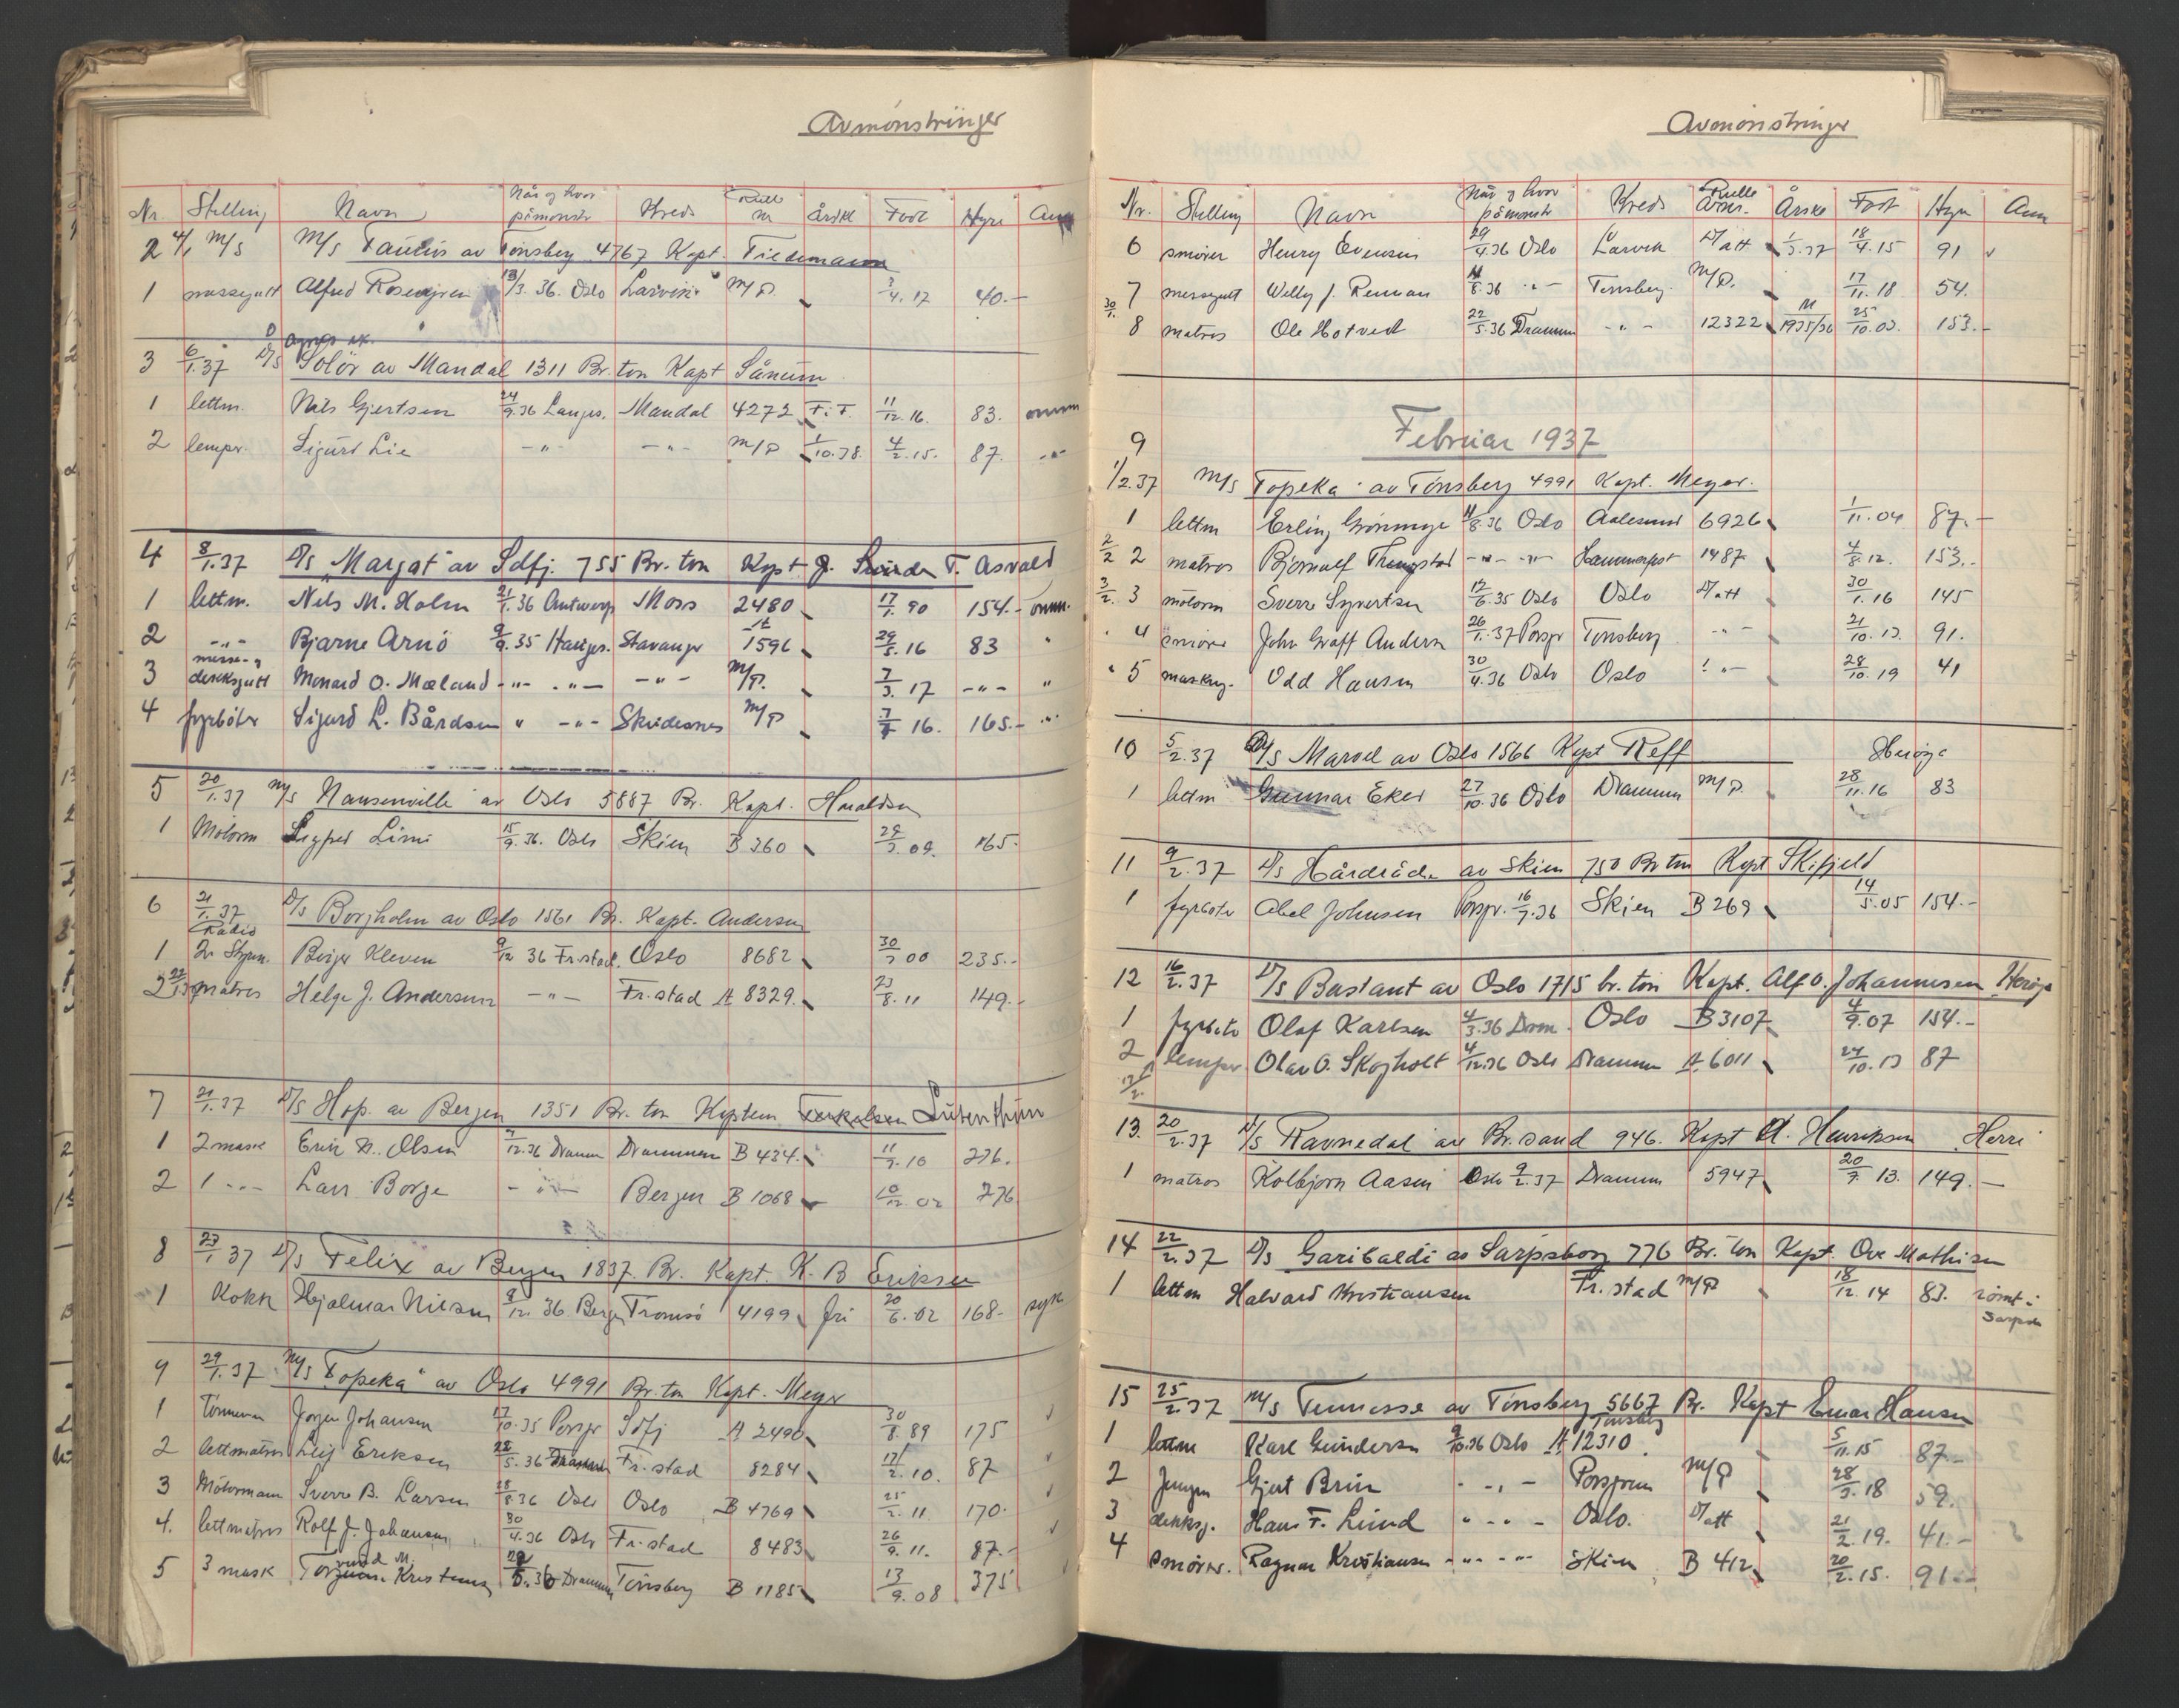 Avmönstringer
Nr. Stelling Navn Når og hvor påmönstr Kreds Rulle nr Årskl Född Hyre Anm
2 4/1 M/S M/S Taurus av Tönsberg 4767 Kapt. Tiedemann
1 messegutt Alfred Rosengren 13/3.36. Oslo Larvik M/P 3/4.17 40.-
3 6/1.37 D/S Solör av Mandal 1311 Br. ton Kapt Sånum
1 lettm. Nils Gjertsen 24/9.36 Langes. Mandal 4272 F.F. 11/12.16. 83.
2 lemper Sigurd Lie -"- -"- M/P 1/10.38. 4/2.15. 87. -"-
4 8/1.37 D/S "Margat" av Sdfj. 755 Br. ton Kapt J. T. Asvald
1 lettm. Nils M. Holm 21/1.36 Antwerp Moss 2480 17/1.90 154.-
2 -"- Bjarne Arnö 9/9.35 Hauges. Stavanger A 1596 29/5.16 83 "
3 messe- og dekksgutt Monard O. Mæland -"- -"- -"- M/P. 7/3.17 -"- "
4 fyrböter Sigurd L. Bårdsen " -"- Skudesnes M/P 7/7 16. 165.- -"-
5 20/1.37 M/S Nausenville av Oslo 5887 Br. Kapt. Haraldsen
1 Motorm Sigfred Limi 15/9.36. Oslo Skien B 360 29/3.09. 165.
6 21/1.37 D/S Borgholm av Oslo 1561 Br. Kapt. Andersen
Radio
1 2 Styrm. Birger Kleven 9/12 36 Fr.stad. Oslo 8682 30/7 00 235.-
2 matros Helge J. Andersen -"- Fr.stad A 8329. 23/8.11 149.-
7 21/1.37 D/S Hop. av Bergen 1351 Br. ton Kaptein
1 2 mask Erik N. Olsen 7/12.36 Dramm Drammen B 434. 11/3.10 276.
2 1 -"- Lars Borge -"- Bergen B 1068 10/12.02 276
8 23/1 37 D/S Felix av Bergen 1837. Br. Kapt. K. B Eriksen
1 Kokk Hjalmar Nilsen 9/12.36 Bergen Tromsö 4199 fri 20/6.02 168- syk
9 29/1.37 M/S "Topeka" av Oslo 4991 Br. ton Kapt. Meyer
1 Tömmerm Jörgen Johansen 17/10.35 Porsgr Sdfj A 2490 30/8.89 175
2 lettmatros Leif Eriksen 22/5.36 Drammen Fr.stad 8284 17/2.10. 87
3 Motormann Sverre B. Larsen 28/8.36 Oslo Oslo B 4769 25/2.11 170.
4. lettmatros Rolf J. Johansen 30/4.36 Oslo Fr.stad 8483 26/9.11. 87.-
5 3 mask M. Kristensen 22/5.36 Drammen Tönsberg B 1185 13/9.08 375
Avmönstringer
Nr. Stelling Navn Når og hvor påmönstr Kreds Rulle Årskl Född Hyre Anm
6 smörer Henry Evensen 29/4.36 Oslo Larvik D/att 1/3.37 18/4.15 91
7 messegutt Willy J. Renman 11/8.36 "- Tönsberg. M/P. 17/11.18 54.
30/1. 8 matros Ole Hotvedt 22/5.36 Dramm -"- 12322 M 1935/36 25/10.03. 153.-
Februar 1937
9
1/2.37 M/S Topeka av Tönsberg 4991 Kapt. Meyer.
1 lettm Erling Grönmyr 11/8.36 Oslo Aalesund 6926 1/11.04 87.-
2/2 2 matros Bjornulf Thringstad -"- -"- Hammerfest 1487 4/8.12. 153.-
3/2. 3 motorm Sverre Syvertsen 12/6.35 Oslo Oslo D/att 30/1.16 145
" 4 smörer John Graff Andersen 26/1.37 Porsgr Tönsberg -"- 21/10.13. 91.
" 5 maskg. Odd Hansen 30/4.36 Oslo Oslo -"- 28/10.19 41
10 5/2.37 D/S Marvel av Oslo 1566 Kapt Reff Heröya
1 lettm Gunnar Eker 27/10.36 Oslo Drammen M/P. 28/11.16 83
11 9/2.37 D/S Hårdråde av Skien 750 Br ton Kapt Skifjeld
1 fyrböter Abel Johnsen Porsgr. 16/7.36 Skien B 269 14/5.05 154.-
12 16/2.37 D/S Bastant av Oslo 1715 br. ton Kapt. Alf O. Johannesen, Heröya
1 fyrböter Olaf Karlsen 4/3.36 Dram. Oslo B 3107 4/9.07 154.-
2 lemper Olav O. Skogholt 4/12.36 Oslo Drammen A 6011 24/10.13 87
13. 20/2.37 D/S Ravnedal av Kr.sand 946. Kapt A. Henriksen Herre
1 matros Kolbjörn Aasen Oslo 9/2.37 Dramm 5947 20/7.13. 149.-
14 22/2.37 D/S Garibaldi av Sarpsborg 776 Br. ton Kapt. Ove Mathisen
1 lettm Halvard Kristiansen Fr.stad M/P 18/12.14 83. römt i Sarpsb
15 25/2.37 M/S Tennesse av Tönsberg 5667 Br. Kapt Einar Hansen
1 lettm Karl Gundersen 9/10.36 Oslo A 12310 Tönsberg 5/11.15 87.-
2 Jungm Gjert Brin -"- Porsgrunn M/P 28/3.18 59.
3 dekksg. Hans F. Lund "-"- Oslo. D/att 21/2.19. 41.-
4 smörer. Ragnar Kristiansen -"- -"- Skien B 412 20/2.15. 91.-